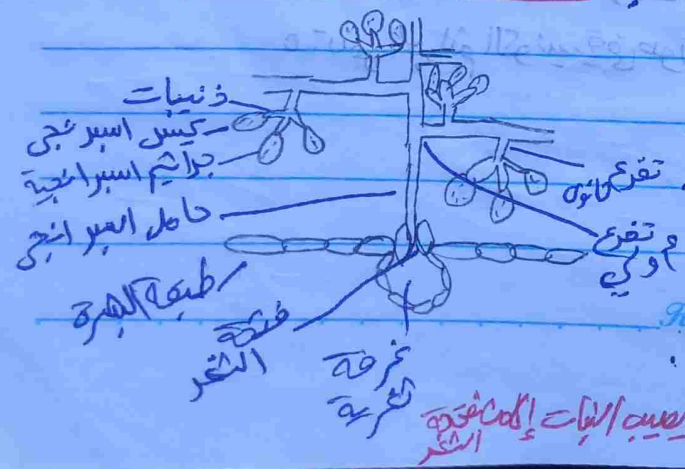 ذنيبات
كيس اسبورنجي
جراثيم اسبرانجية
حامل اسبرانجي
طبقة البشرة
فتحة
الثغر
غرفة
ثغرية
تفرع
ثانوي
تفرع
اولي
يصيب النبات إلا من فتحة
الثغر